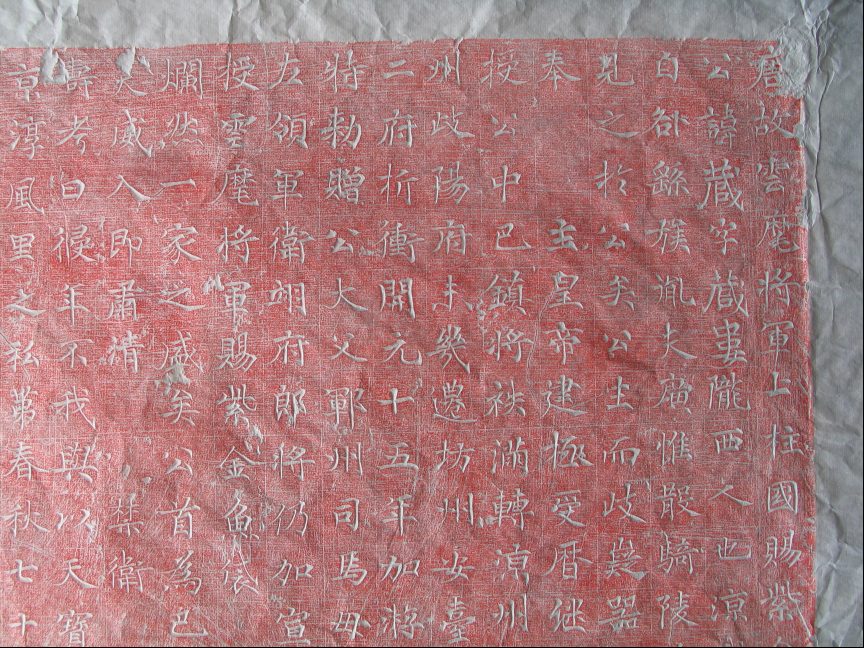 唐故雲麾將軍上柱國賜紫
公諱字隴西之也涼
自族胤夫廣惟散騎陵
見之於公矣公生而歧嶷器
奉主皇帝建極受曆继
授公中巴鎮將袟滿轉涼州
州歧陽府未幾遷坊州安臺
二府折衝開元十五年加游
特勑贈公大父鄆州司馬母
左領軍衛翊府郎將仍加宣
授雲麾將軍賜紫金魚袋
爛然一家之盛矣公首為巴
矣威入即肅清禁衛
壽考曰年不我與以天寶
京淳風里之私第春秋七十